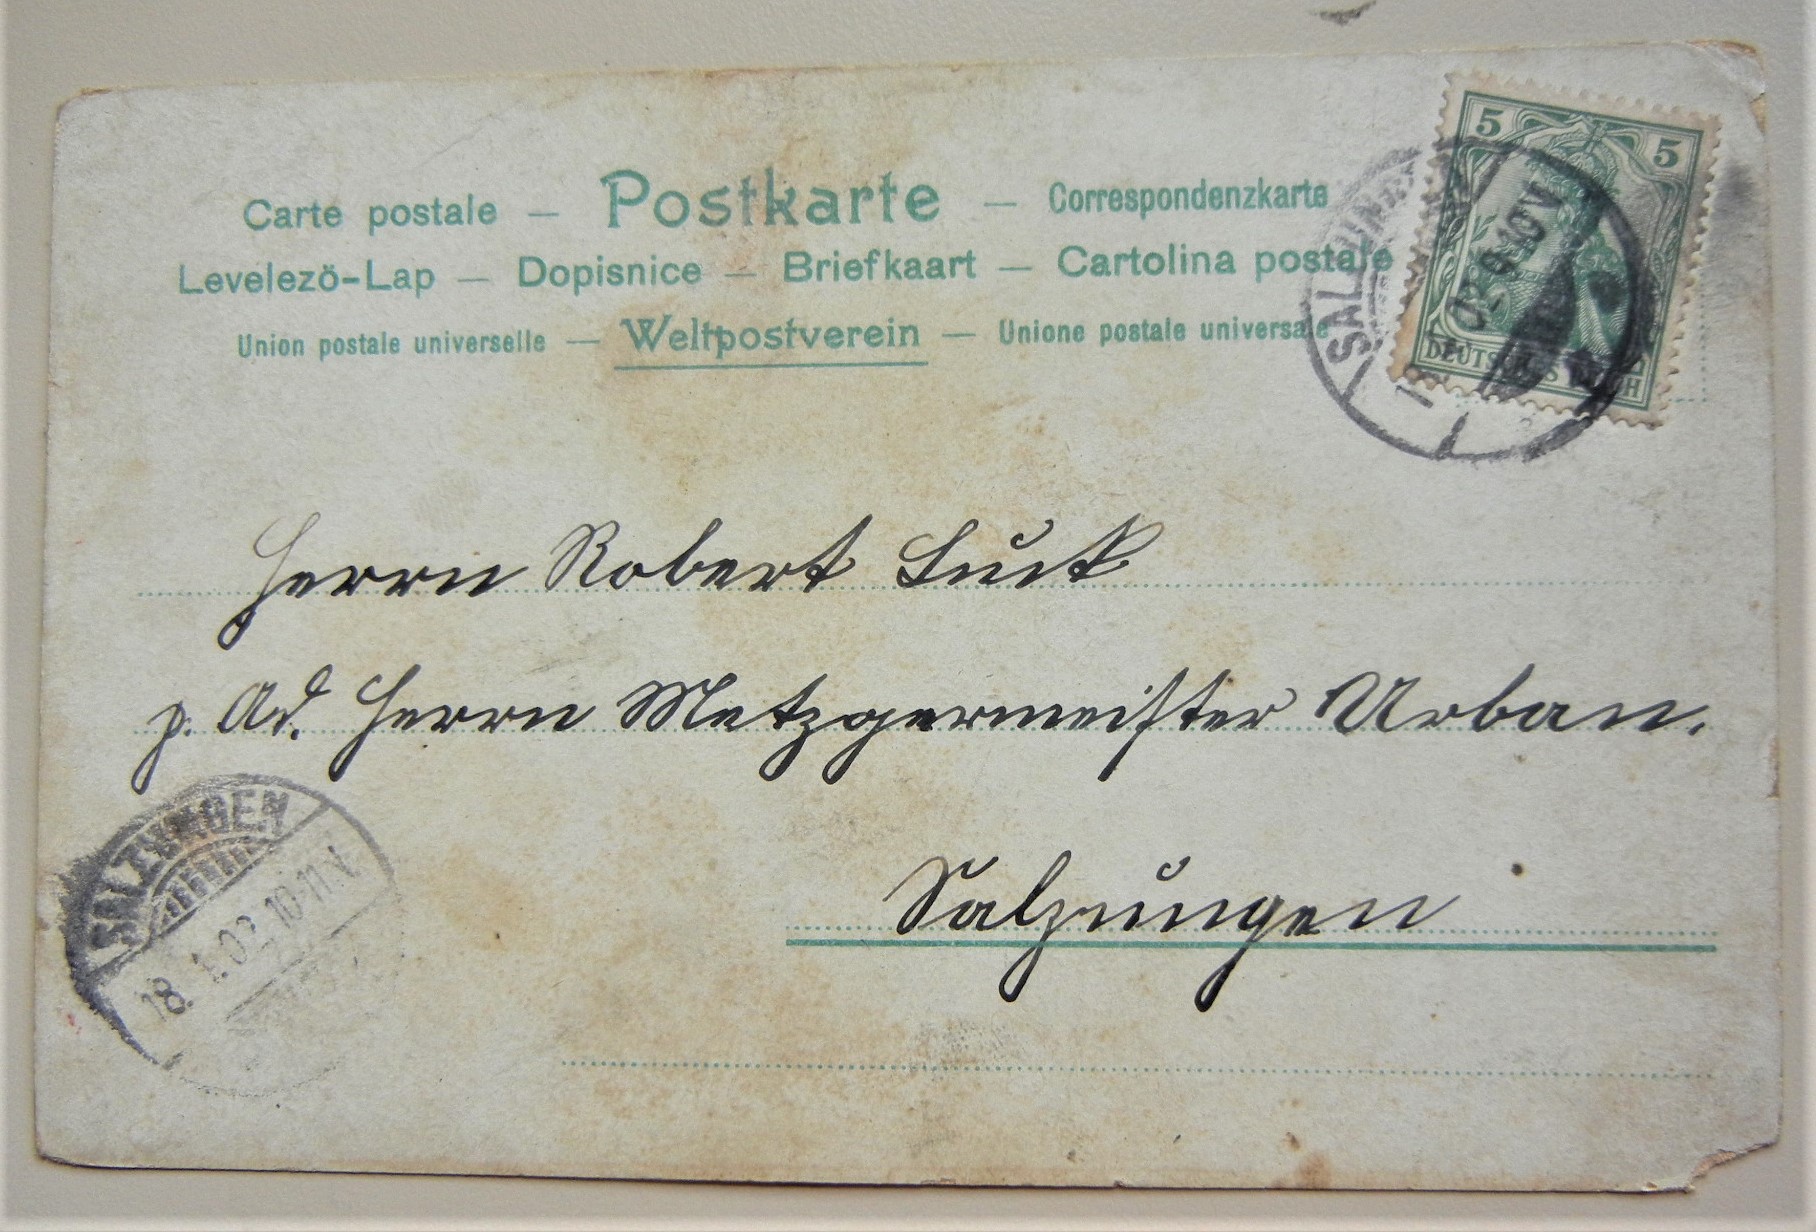 Carte postale — Postkarte — Correspondenzkarte
Levelező-Lap — Dopisnice — Briefkaart — Cartolina postale
Union postale universelle — Weltpostverein — Unione postale universale
5 5
DEUTSCHES REICH
SALZUNGEN
02 9-10V.
Herrn Robert Luck
p. Ad. Herrn Metzgermeister Urban.
Salzungen
SALZUNGEN
18. 1. 02. 10-11V.